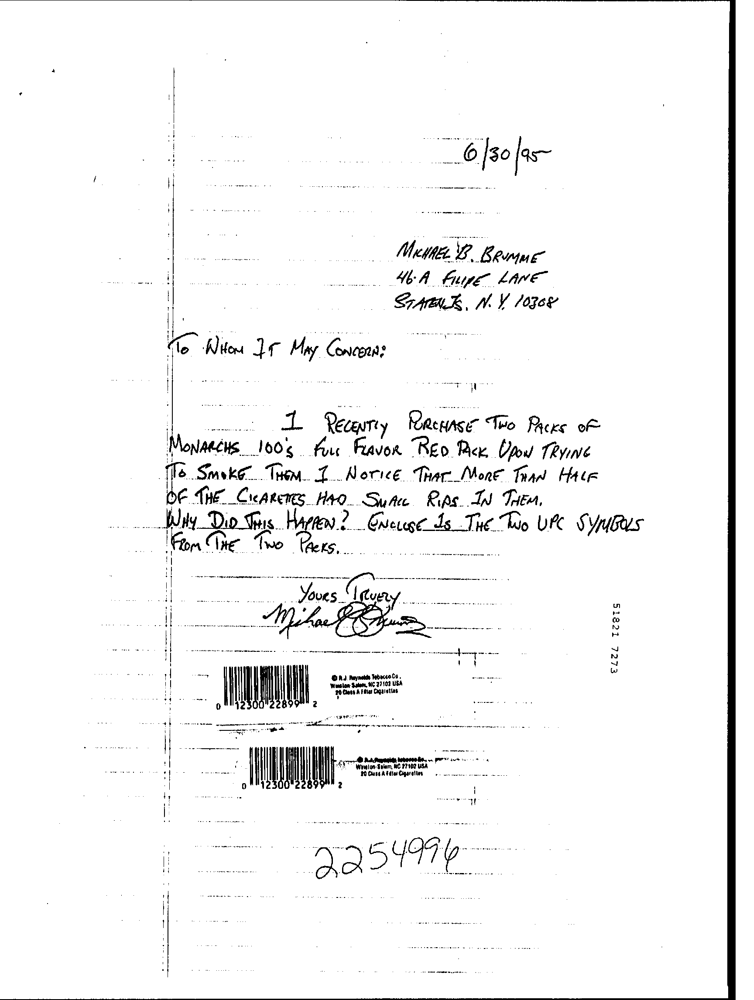 6/30/95
MICHAEL B. BRUMME
46-A FILIPE LANE
STATEN IS. N.Y. 10308
TO WHOM IT MAY CONCERN:
I RECENTLY PURCHASE TWO PACKS OF
MONARCHS 100'S FULL FLAVOR RED PACK UPON TRYING
TO SMOKE THEM I NOTICE THAT MORE THAN HALF
OF THE CIGARETES HAD SMALL RIPS IN THEM.
WHY DID THIS HAPPEN? ENCLOSE IS THE TWO UPC SYMBOLS
FROM THE TWO PACKS.
YOURS TRUERY
Michael B Brumme
51821 7273
© R.J. Reynolds Tobacco Co.
Winston-Salem, NC 27102 USA
20 Class A Filter Cigarettes
0 12300 22899 2
© R.J. Reynolds Tobacco Co.
Winston-Salem, NC 27102 USA
20 Class A Filter Cigarettes
0 12300 22899 2
2254996